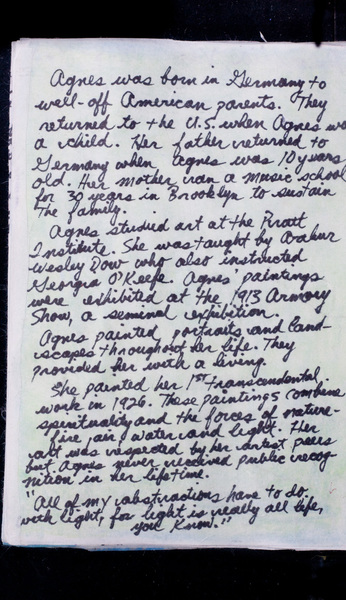 Agnes was born in Germany to
well-off American parents. They
returned to the U.S. when Agnes wa
a child. Her father returned to
Germany when Agnes was 10 years
old. Her mother ran a music school
for 30 years in Brooklyn to sustain
the family.
Agnes studied art at the Pratt
Institute. She was taught by
Wesley Dow who also instructed
Georgia O'Keefe. Agnes' paintings
were exhibited at the 1913 Armory
Show, a seminal exhibition.
Agnes painted portraits and land-
scapes throughout her life. They
provided her with a living.
She painted her 1st transcendental
work in 1926. These paintings combine
spirituality and the forces of nature-
fire, air, water and light. Her
art was respected by her artist peers
but Agnes never received public recog-
nition in her lifetime.
"All of my abstractions have to do
with light, for light is really all life,
you know."